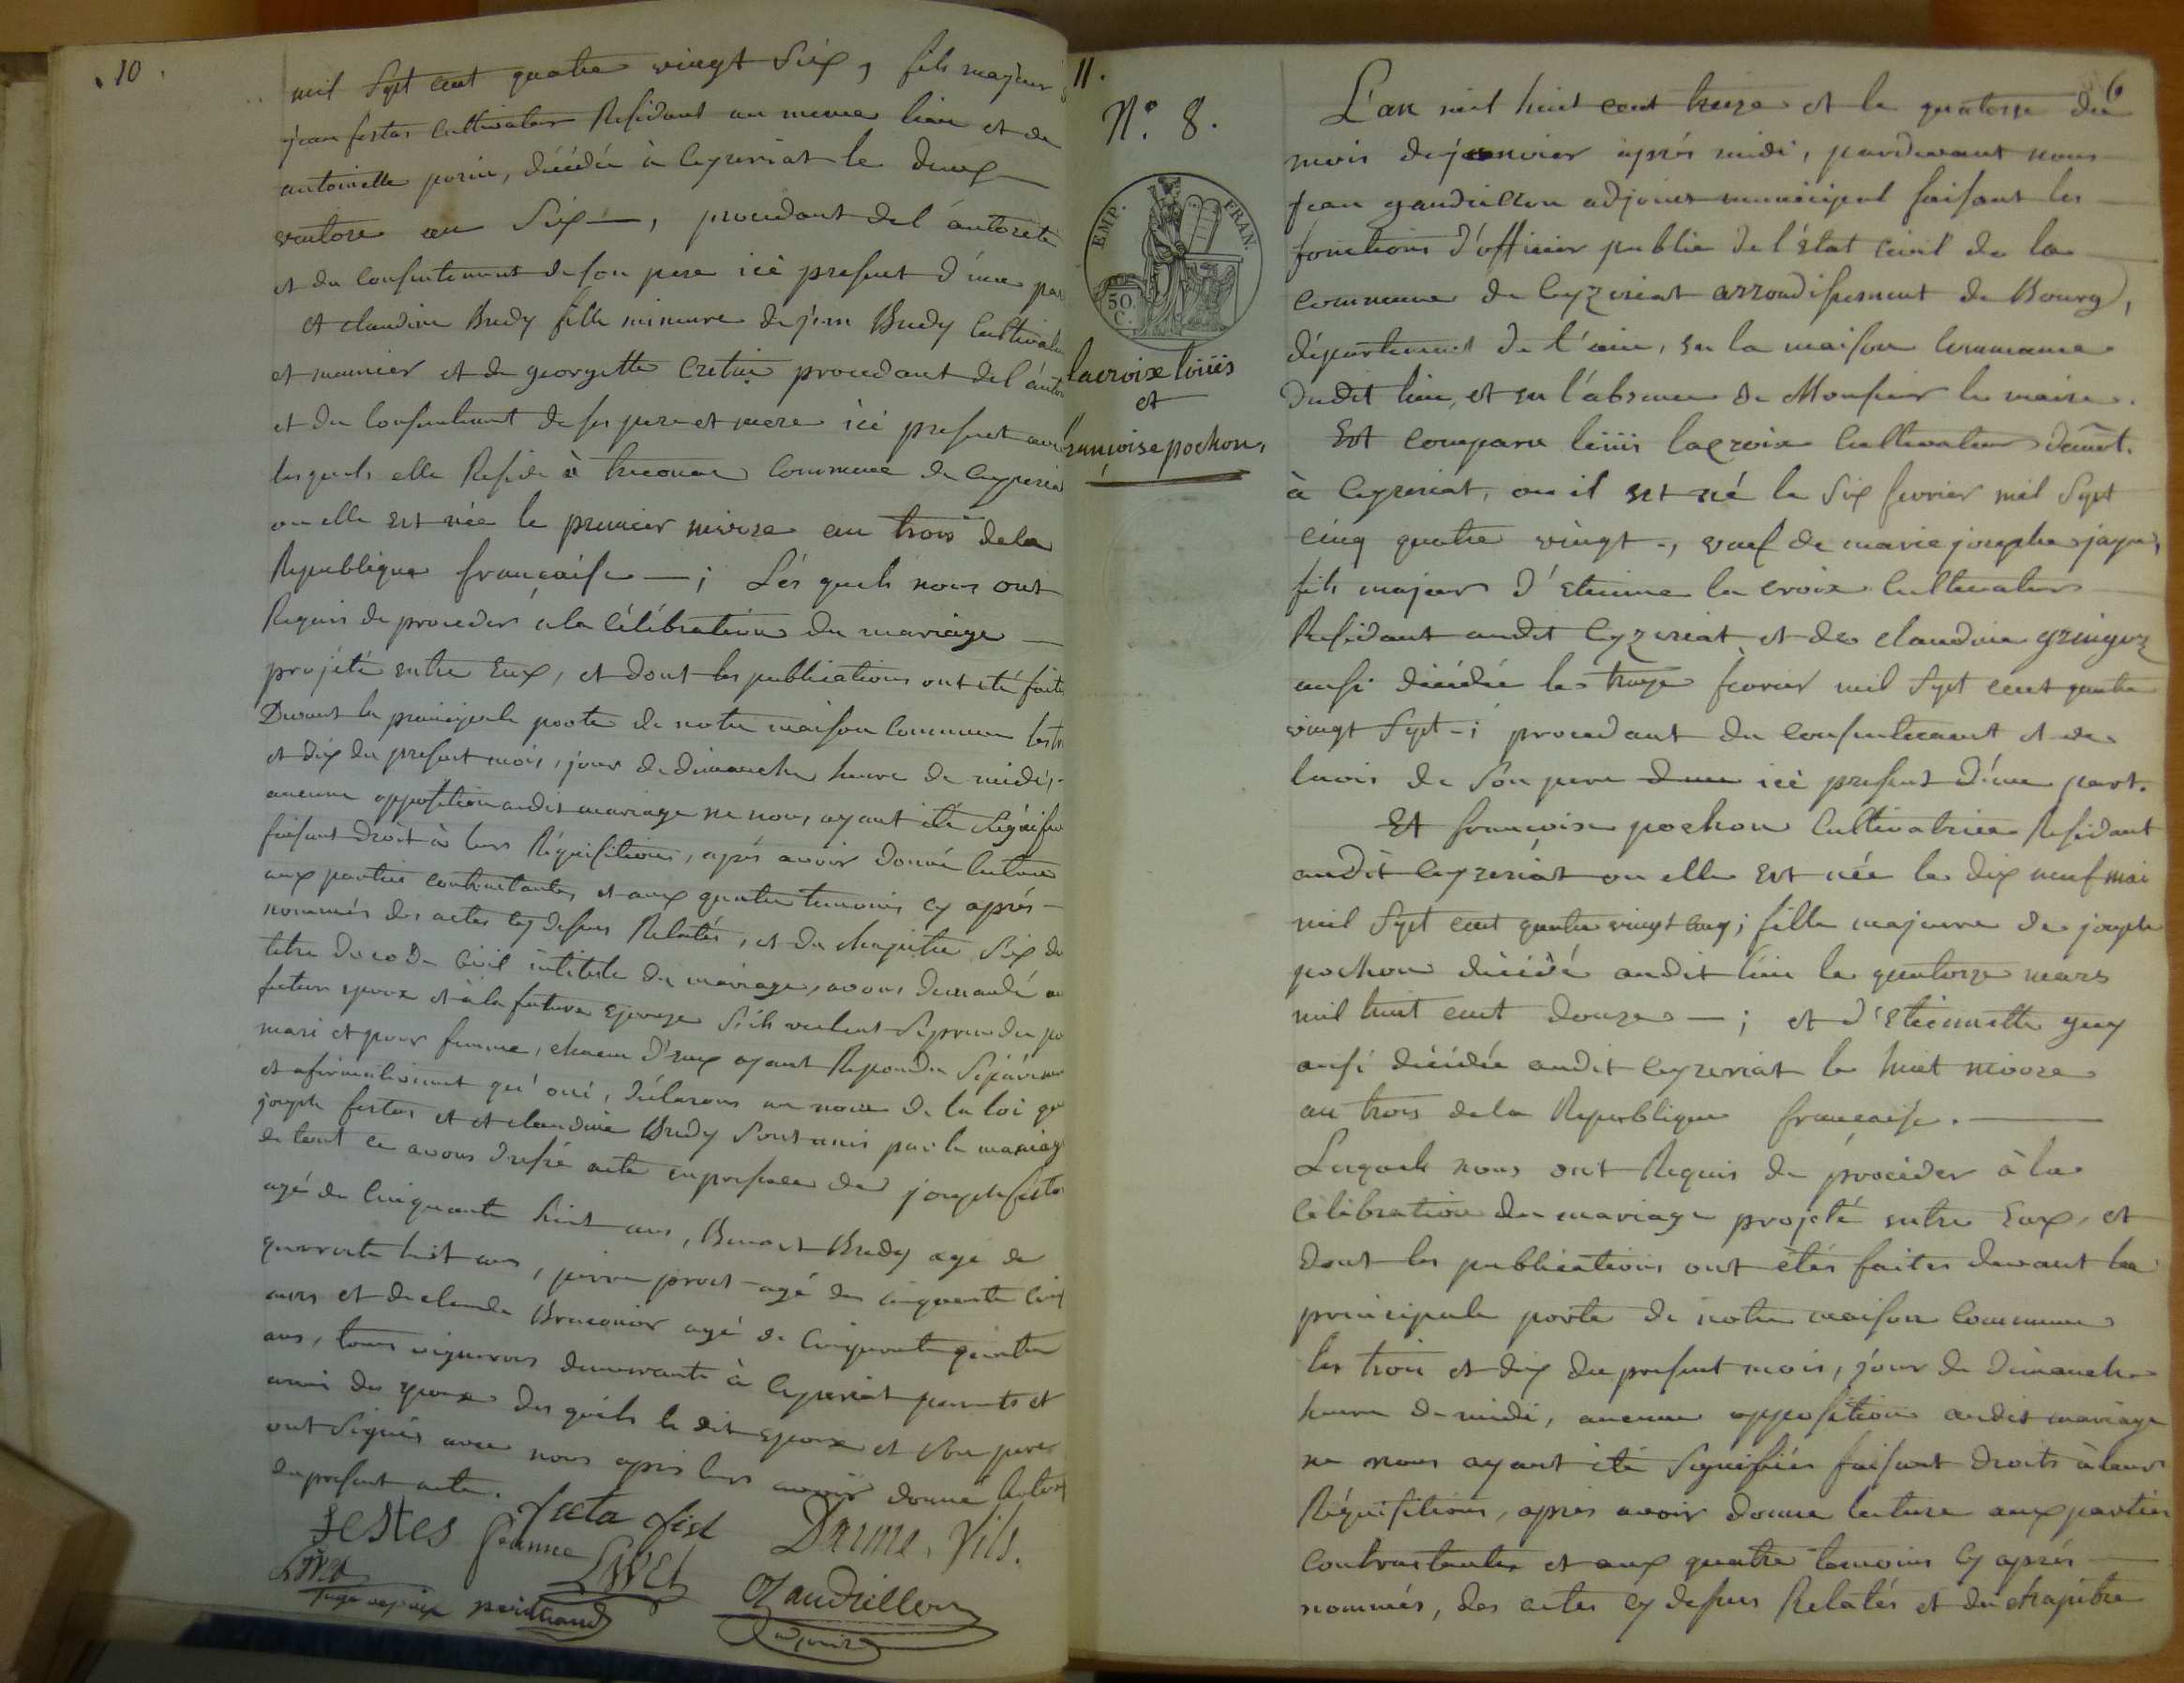 10
mil Sept cent quatre vingt Six, fils majeur
jean festas cultivateur Residant au meme lieu et de
antoinette perin, décédée à Ceyzeriat le deux
ventose an Six —, procedant del'autorité
et du consentement de son pere icé present d'une par
et claudine Bredy fille mineure de jean Bredy Cultivateu
et meunier et de georgette Cretin procedant del'auto
et du Consentement de ses pere et mere icé present avec
lesquels elle Reside à treconas Commune de Ceyzeria
ou elle est née le premier nivose an trois dela
Republique francaise —; Lés quels nous ont
Requis de proceder ala célébration du mariage
projété entre Eux, et dont les publications ont été faite
Devant la principale porte de notre maison Commune les tr
et dix du present mois, jour de dimanche heure de midi,
aucune opposition audit mariage ne nous ayant été Signifie
faisant droit à leurs Réquisitions, après avoir donné lecture
aux parties contractantes et aux quatre temoins cy après
nommés des actes cy dessus Relatés, et du chapitre Six du
titre du code Civil intitulé du mariage, avons demandé au
futur epoux et à la future Epouze S'ils veulent Se prendre po
mari et pour femme, chacun d'eux ayant Repondu Séparéme
et afirmativement qu'oui, déclarons au nom de la loi que
joseph festas et et claudine Bredy Sont unis par le mariag
de tout ce avons dressé acte en presence de joseph festa
agé de Cinquante huit ans, Benoit Bredy agé de
quarante huit ans, pierre prost agé de cinquante Cinq
ans et de claude Braconier agé de Cinquante quatre
ans, tous vignerons demeurants à Ceyzeriat parents et
amis des epoux des quels le dit epoux et Son pere
ont Signés avec nous après leurs avoir donné lecture
du present acte.
festes
Jeanne
Livet
Darme, fils.
Gaudillon
adjoint
11.
6
N.° 8.
EMP. FRAN.
50 C.
lacroix loüis
et
françoise pochon,
L'an mil huit cent treize et le quatorze du
mois de janvier après midi, pardevant nous
jean gaudillon adjoint municipal faisant les
fonctions d'officier public de l'état civil de la
commune de Ceyzeriat arrondissement de Bourg,
département de l'ain, en la maison Commune
dudit lieu, et en l'absence de Monsieur le maire.
Est comparu loüis lacroix Cultivateur demt.
à Ceyzeriat, ou il est né le Six fevrier mil Sept
cinq quatre vingt —, veuf de marie josephe jayr,
fils majeur d'Etienne la croix Cultivateur
Residant audit Ceyzeriat et de claudine gringoz
aussi décédée le treize fevrier mil Sept cent quatre
vingt Sept —; procedant du consentement et de
lavis de Son pere d'une icé present d'une part.
Et françoise pochon Cultivatrice Residant
audit Ceyzeriat ou elle est née le dix neuf mai
mil Sept cent quatre vingt cinq; fille majeure de joseph
pochon décédé audit lieu le quatorze mars
mil huit cent douze —; et d'Etiennette guy
aussi décédée audit Ceyzeriat le huit nivose
an trois dela Republique francaise.
Lesquels nous ont Requis de procéder à la
célébration du mariage projeté entre Eux, et
dont les publications ont étés faites devant la
principale porte de notre maison Commune
les trois et dix du present mois, jour de dimanche
heure de midi, aucune opposition audit mariage
ne nous ayant été Signifiée faisant droits à leurs
Réquisitions, après avoir donné lecture aux parties
contractantes et aux quatre temoins cy après
nommés, des actes cy dessus Relatés et du chapitre